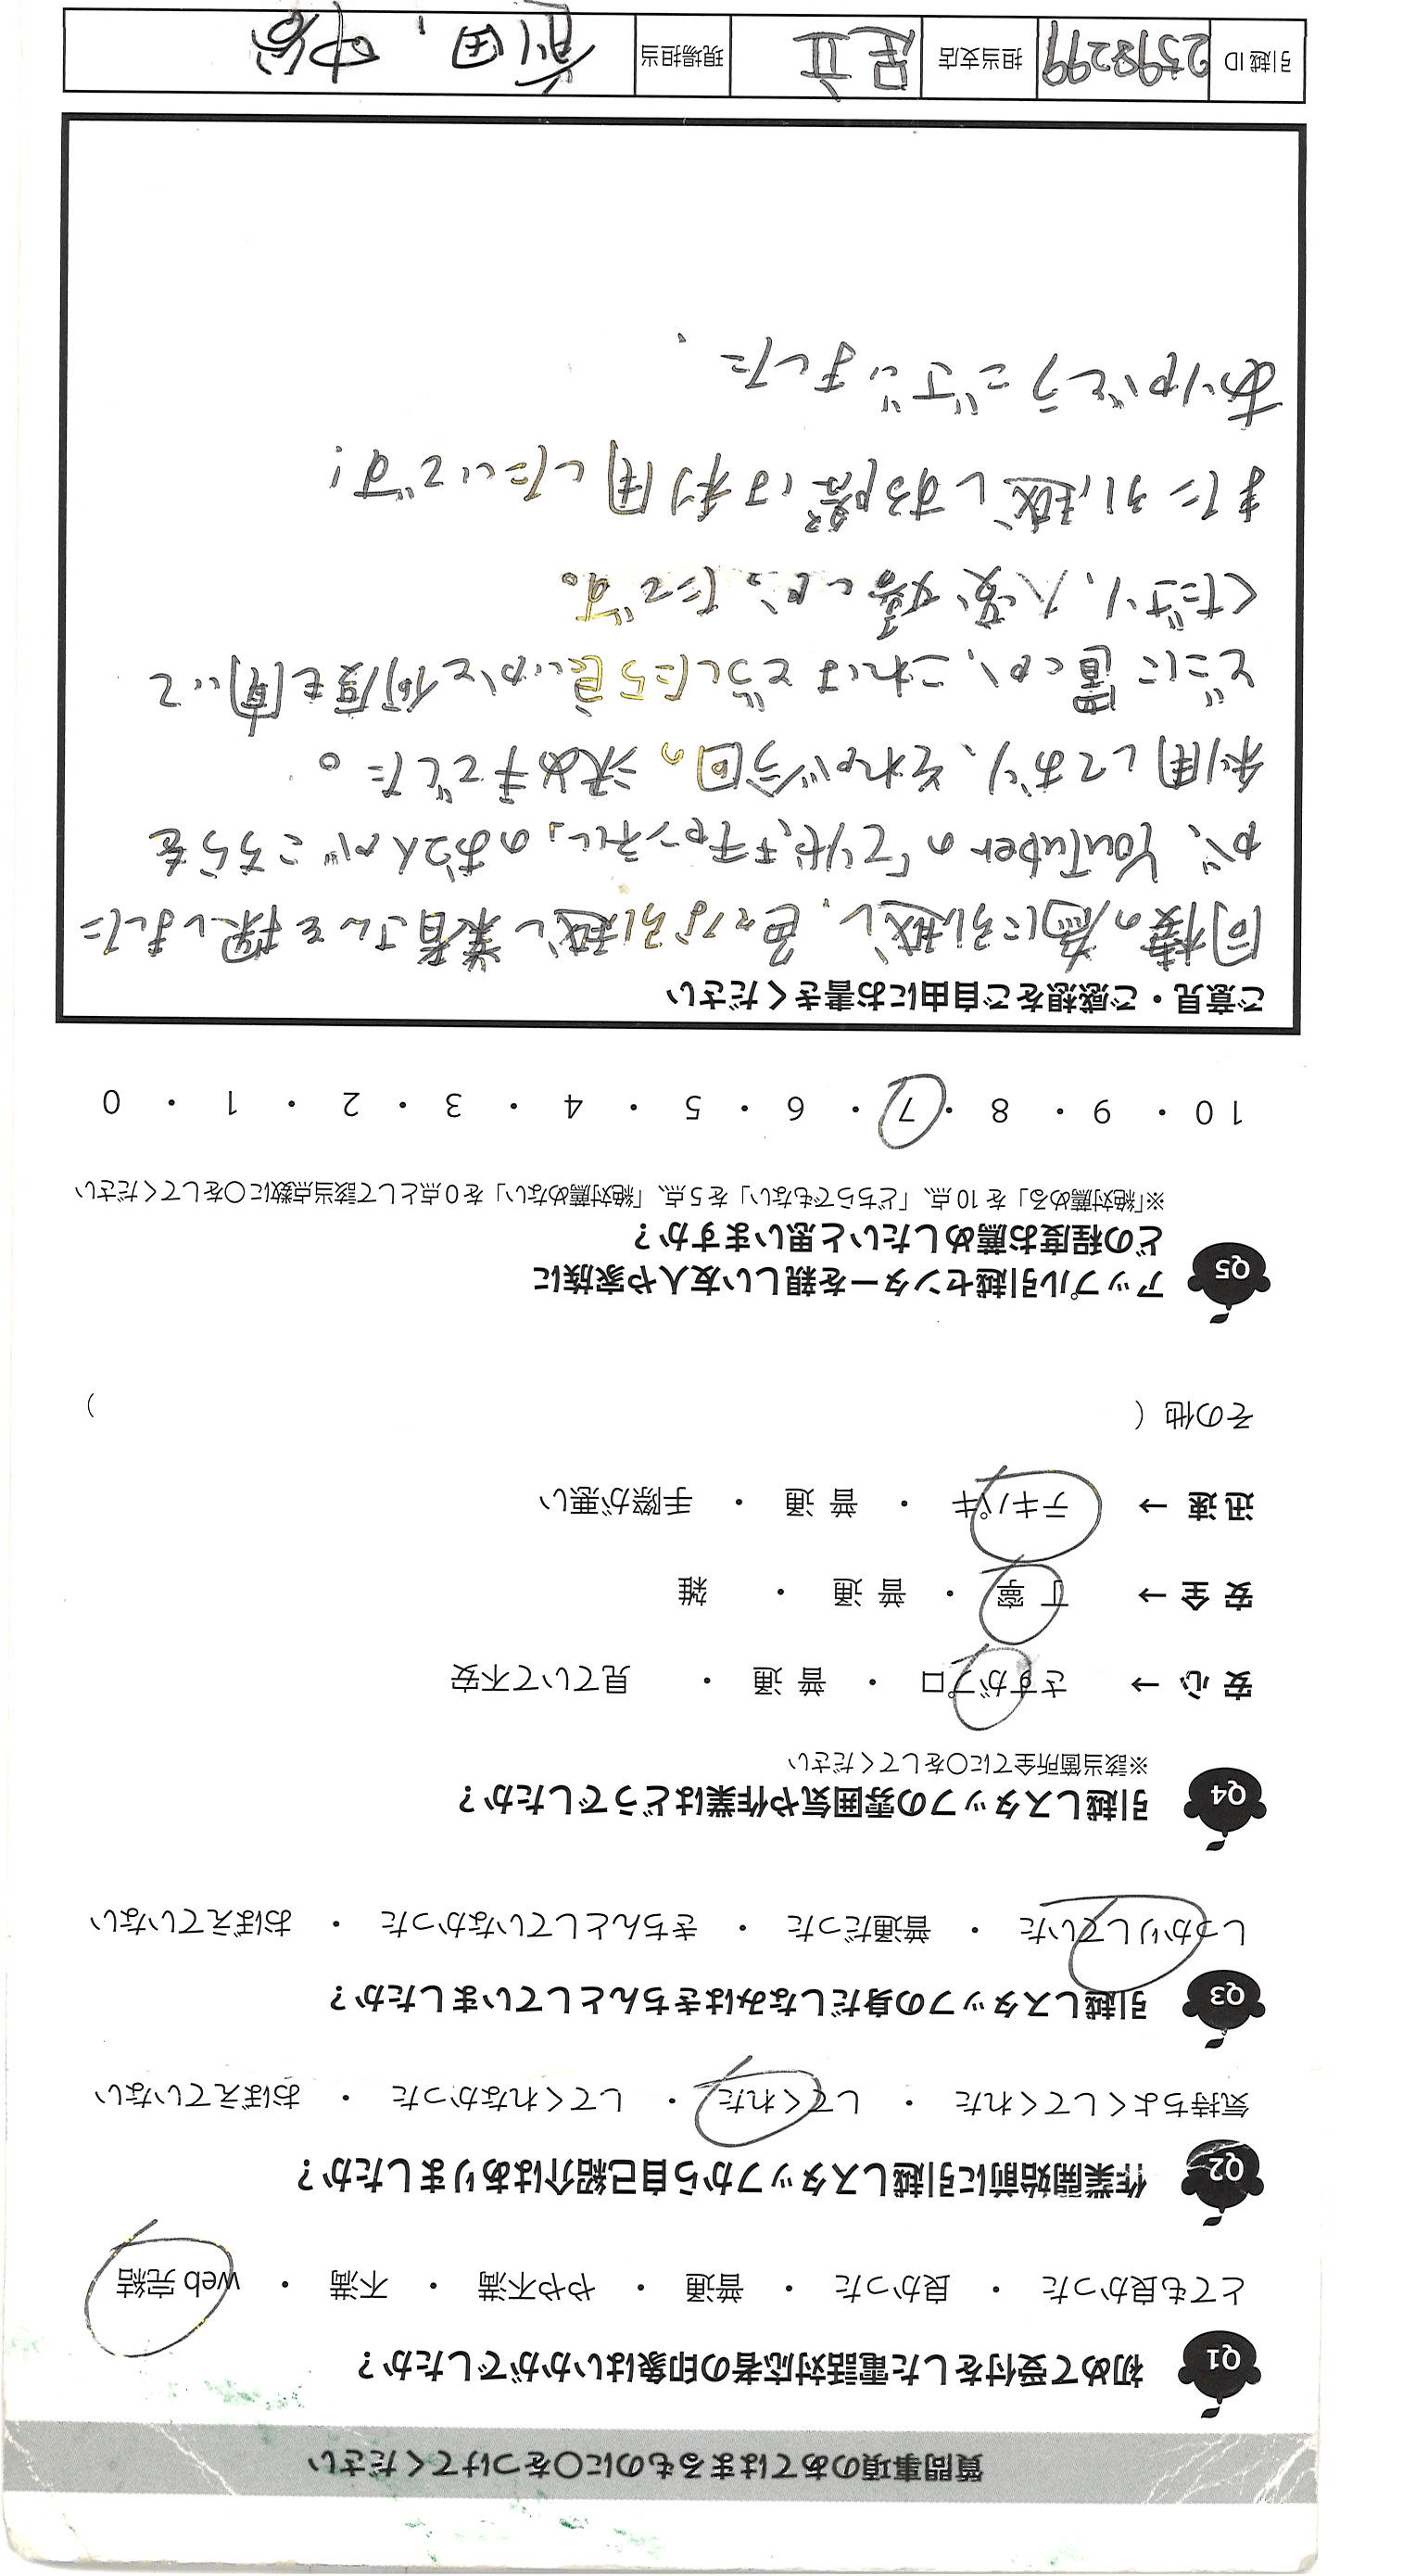 質問事項のあてはまるものに○をつけてください
Q1 初めて受付をした電話対応者の印象はいかがでしたか？
とても良かった ・ 良かった ・ 普通 ・ やや不満 ・ 不満 ・ web 完結
Q2 作業開始前に引越しスタッフから自己紹介はありましたか？
気持ちよくしてくれた ・ してくれた ・ してくれなかった ・ おぼえていない
Q3 引越しスタッフの身だしなみはきちんとしていましたか？
しっかりしていた ・ 普通だった ・ きちんとしていなかった ・ おぼえていない
Q4 引越しスタッフの雰囲気や作業はどうでしたか？
※該当箇所全てに○をしてください
安 心 → さすがプロ ・ 普 通 ・ 見ていて不安
安 全 → 丁 寧 ・ 普 通 ・ 雑
迅 速 → テキパキ ・ 普 通 ・ 手際が悪い
その他（ ）
Q5 アップル引越センターを親しい友人や家族に
どの程度お薦めしたいと思いますか？
※「絶対薦める」を 10 点、「どちらでもない」を 5 点、「絶対薦めない」を 0 点として該当点数に○をしてください
10 ・ 9 ・ 8 ・ 7 ・ 6 ・ 5 ・ 4 ・ 3 ・ 2 ・ 1 ・ 0
ご意見・ご感想をご自由にお書きください
同棲の為に引越し、色々な引越し業者さんを探しました
が、YouTuberの「とりせチャンネル」のお2人がこちらを
利用しており、それが今回の決め手でした。
どこに置くか、これはどうしたら良いかと何度も聞いて
くださり、大変嬉しかったです。
また引越しする際は利用したいです！
ありがとうございました、
引越 ID 2598299 担当支店 足立 現場担当 前田、中谷